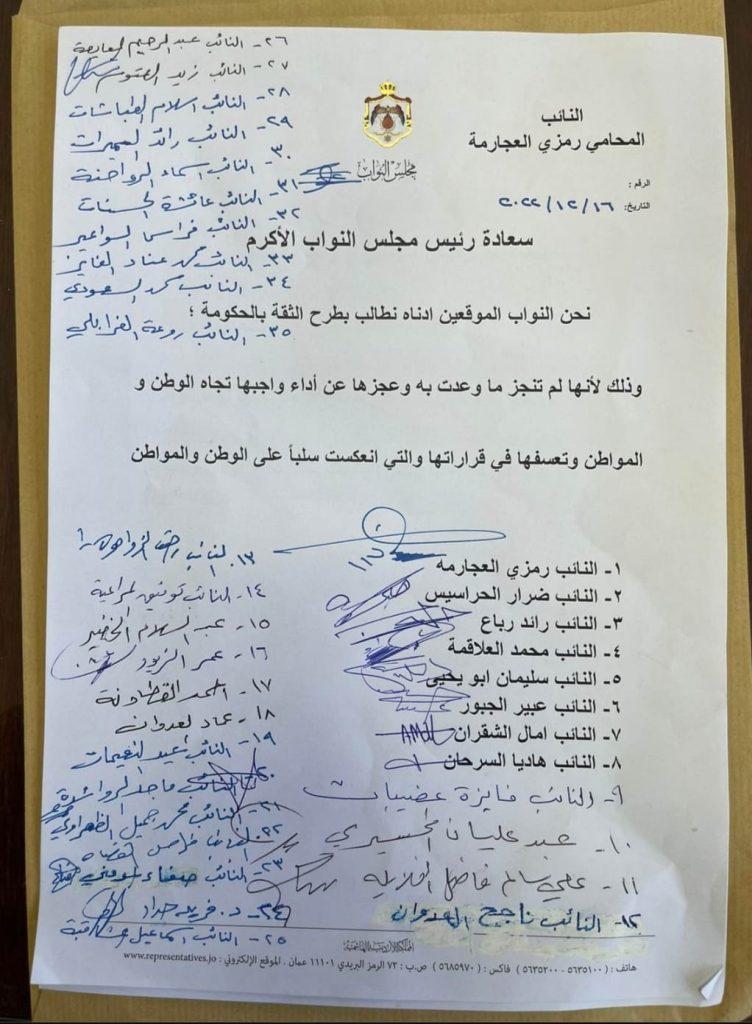 النائب
المحامي رمزي العجارمة
مجلس النواب
الرقم :
التاريخ: ٢٠٢٢/١٢/١٦
سعادة رئيس مجلس النواب الأكرم
نحن النواب الموقعين ادناه نطالب بطرح الثقة بالحكومة ؛
وذلك لأنها لم تنجز ما وعدت به وعجزها عن أداء واجبها تجاه الوطن و
المواطن وتعسفها في قراراتها والتي انعكست سلباً على الوطن والمواطن
١- النائب رمزي العجارمه
٢- النائب ضرار الحراسيس
٣- النائب رائد رباع
٤- النائب محمد العلاقمة
٥- النائب سليمان ابو يحيى
٦- النائب عبير الجبور
٧- النائب امال الشقران
٨- النائب هاديا السرحان
٩- النائب فايزة عضيبات
١٠- عبد عليان
١١- علي سالم فاضل
١٢- النائب ناجح العدوان
١٣- النائب
١٤- النائب توفيق المراعية
١٥- عبد السلام الخضير
١٦- عمر الزيود
١٧- احمد القطاونة
١٨- عماد العدوان
١٩- النائب عيد النعيمات
٢٠- النائب ماجد الرواشدة
٢١- النائب محمد جميل الظهراوي
٢٢- النائب فراس القضاة
٢٣- النائب صفاء المومني
٢٤- د. فريد حداد
٢٥- النائب اسماعيل المشاقبة
٢٦- النائب عبد الرحيم المعايعة
٢٧- النائب زيد العتوم
٢٨- النائب اسلام الطباشات
٢٩- النائب رائد السميرات
٣٠- النائب اسماء الرواحنة
٣١- النائب عائشة الحسنات
٣٢- النائب فراس السواعير
٣٣- النائب محمد عناد الفايز
٣٤- النائب محمد السعودي
٣٥- النائب روعة الغرابلي
المملكة الأردنية الهاشمية
هاتف : ( ٥٦٣٥١٠٠ - ٥٦٣٥٢٠٠ ) فاكس : ( ٥٦٨٥٩٧٠ ) ص.ب : ٧٢ الرمز البريدي ١١١٠١ عمان . الموقع الإلكتروني : www.representatives.jo